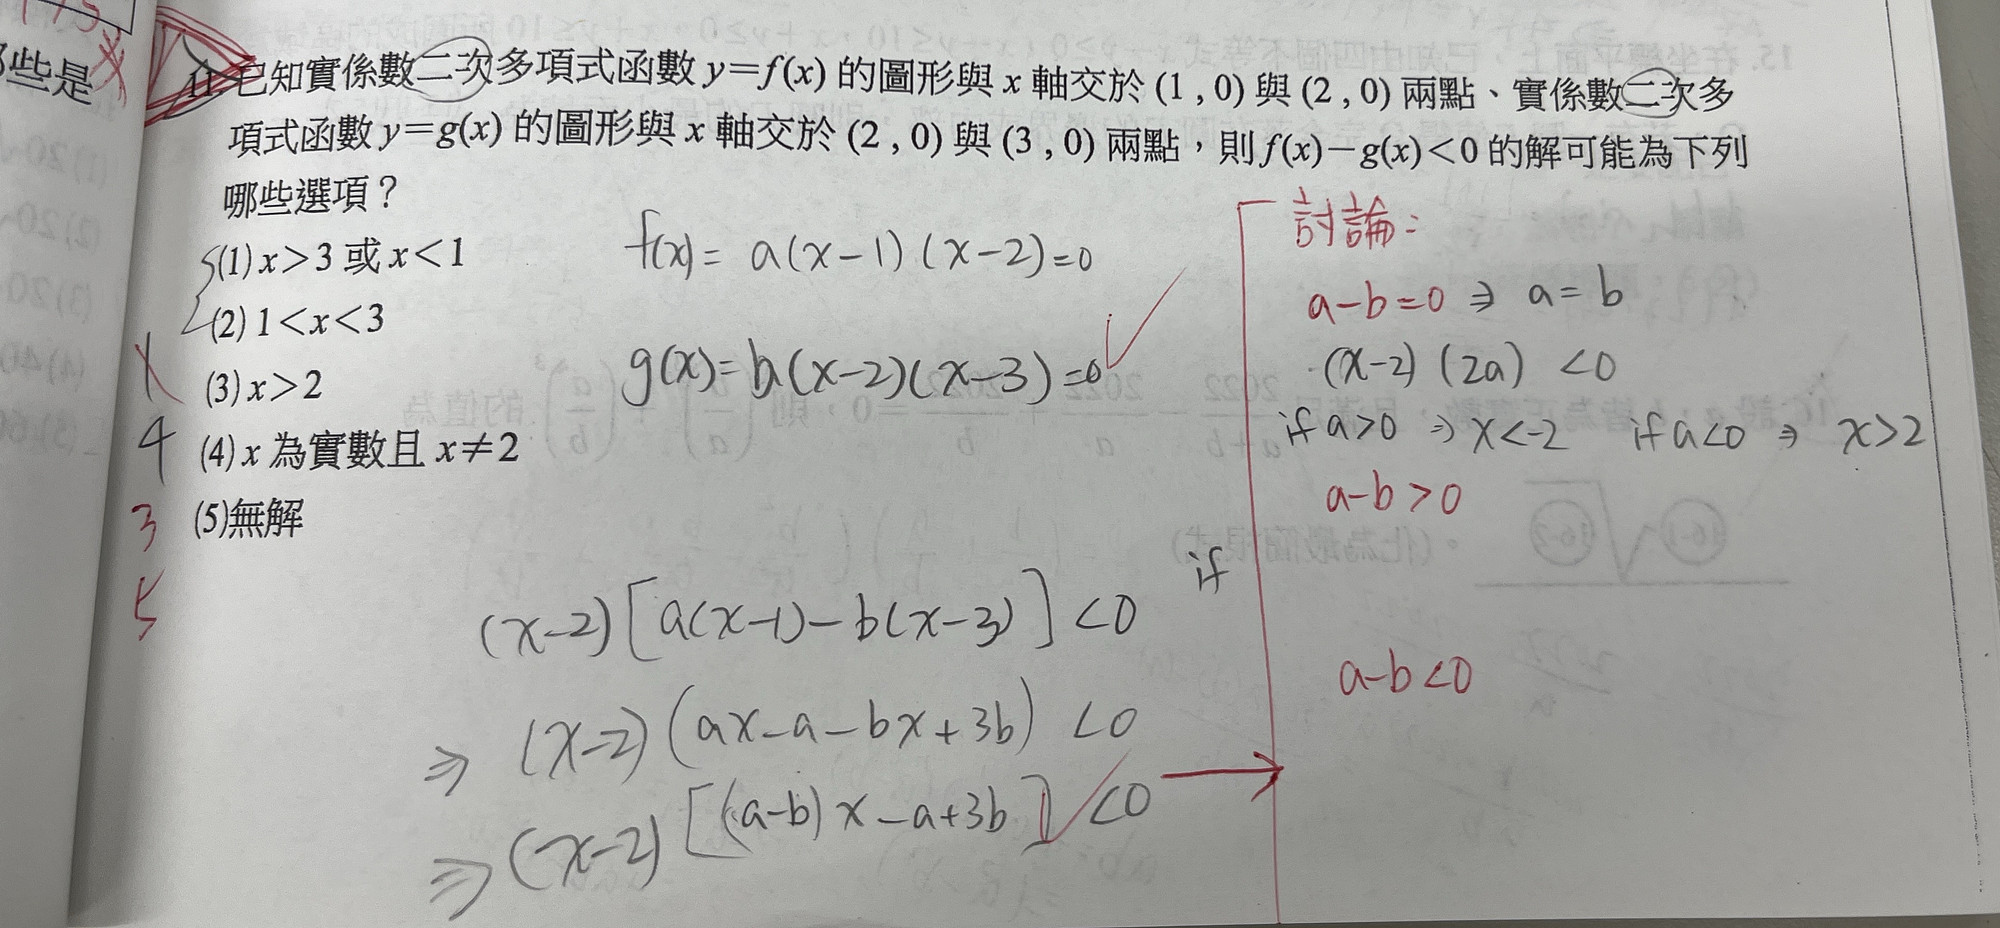 些是
11. 已知實係數二次多項式函數 y=f(x) 的圖形與 x 軸交於 (1 , 0) 與 (2 , 0) 兩點、實係數二次多
項式函數 y=g(x) 的圖形與 x 軸交於 (2 , 0) 與 (3 , 0) 兩點，則 f(x)－g(x)<0 的解可能為下列
哪些選項？
(1) x>3 或 x<1
(2) 1<x<3
(3) x>2
(4) x 為實數且 x≠2
(5)無解
4
3
5
f(x)= a(x-1)(x-2)=0
g(x)= b(x-2)(x-3)=0
(x-2)[a(x-1)-b(x-3)]<0
⇒ (x-2)(ax-a-bx+3b)<0
⇒ (x-2)[(a-b)x-a+3b]<0
if
討論:
a-b=0 ⇒ a=b
(x-2)(2a)<0
if a>0 ⇒ x<-2 if a<0 ⇒ x>2
a-b>0
a-b<0